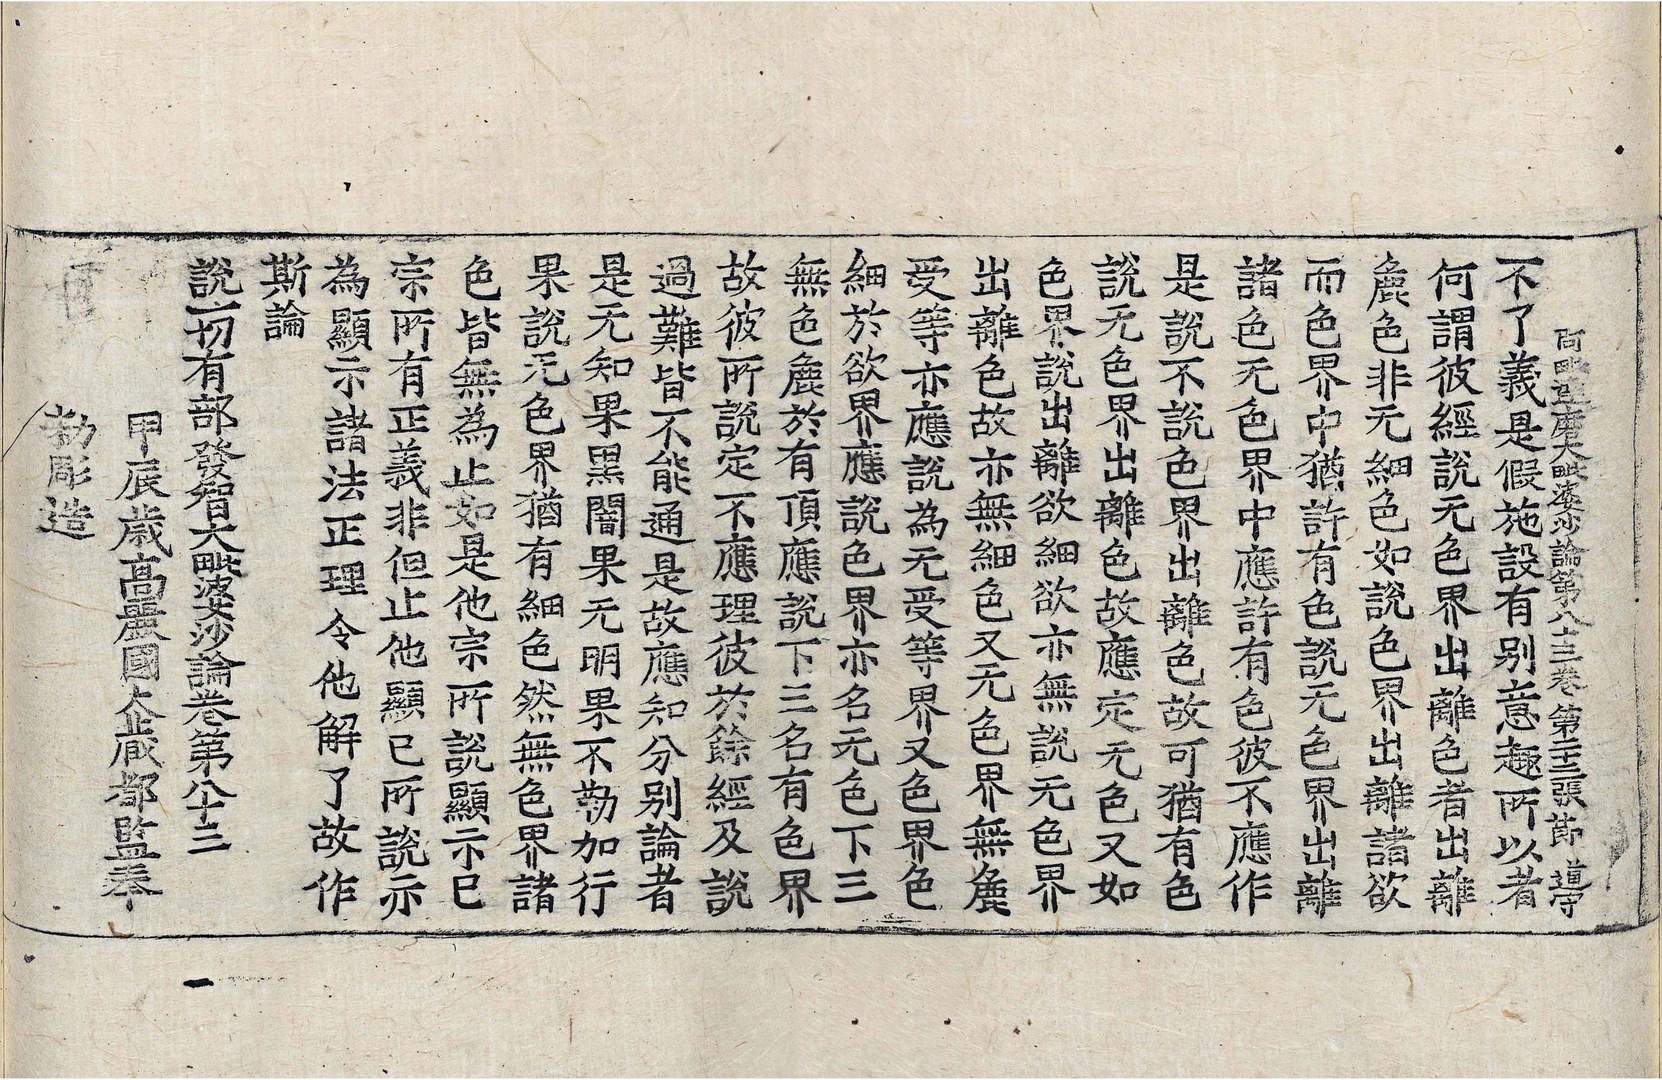 阿毗達磨大毗婆沙論第八十三卷 第二十三張 節 導
不了義是假施設有別意趣所以者
何謂彼經說无色界出離色者出離
麁色非无細色如說色界出離諸欲
而色界中猶許有色說无色界出離
諸色无色界中應許有色彼不應作
是說不說色界出離色故可猶有色
說无色界出離色故應定无色又如
色界說出離欲細欲亦無說无色界
出離色故亦無細色又无色界無麁
受等亦應說為无受等界又色界色
細於欲界應說色界亦名无色下三
無色麁於有頂應說下三名有色界
故彼所說定不應理彼於餘經及說
過難皆不能通是故應知分別論者
是无知果黑闇果无明果不勤加行
果說无色界猶有細色然無色界諸
色皆無為止如是他宗所說顯示已
宗所有正義非但止他顯已所說示
為顯示諸法正理令他解了故作
斯論
說一切有部發智大毗婆沙論卷第八十三
甲辰歲高麗國大藏都監奉
勅彫造